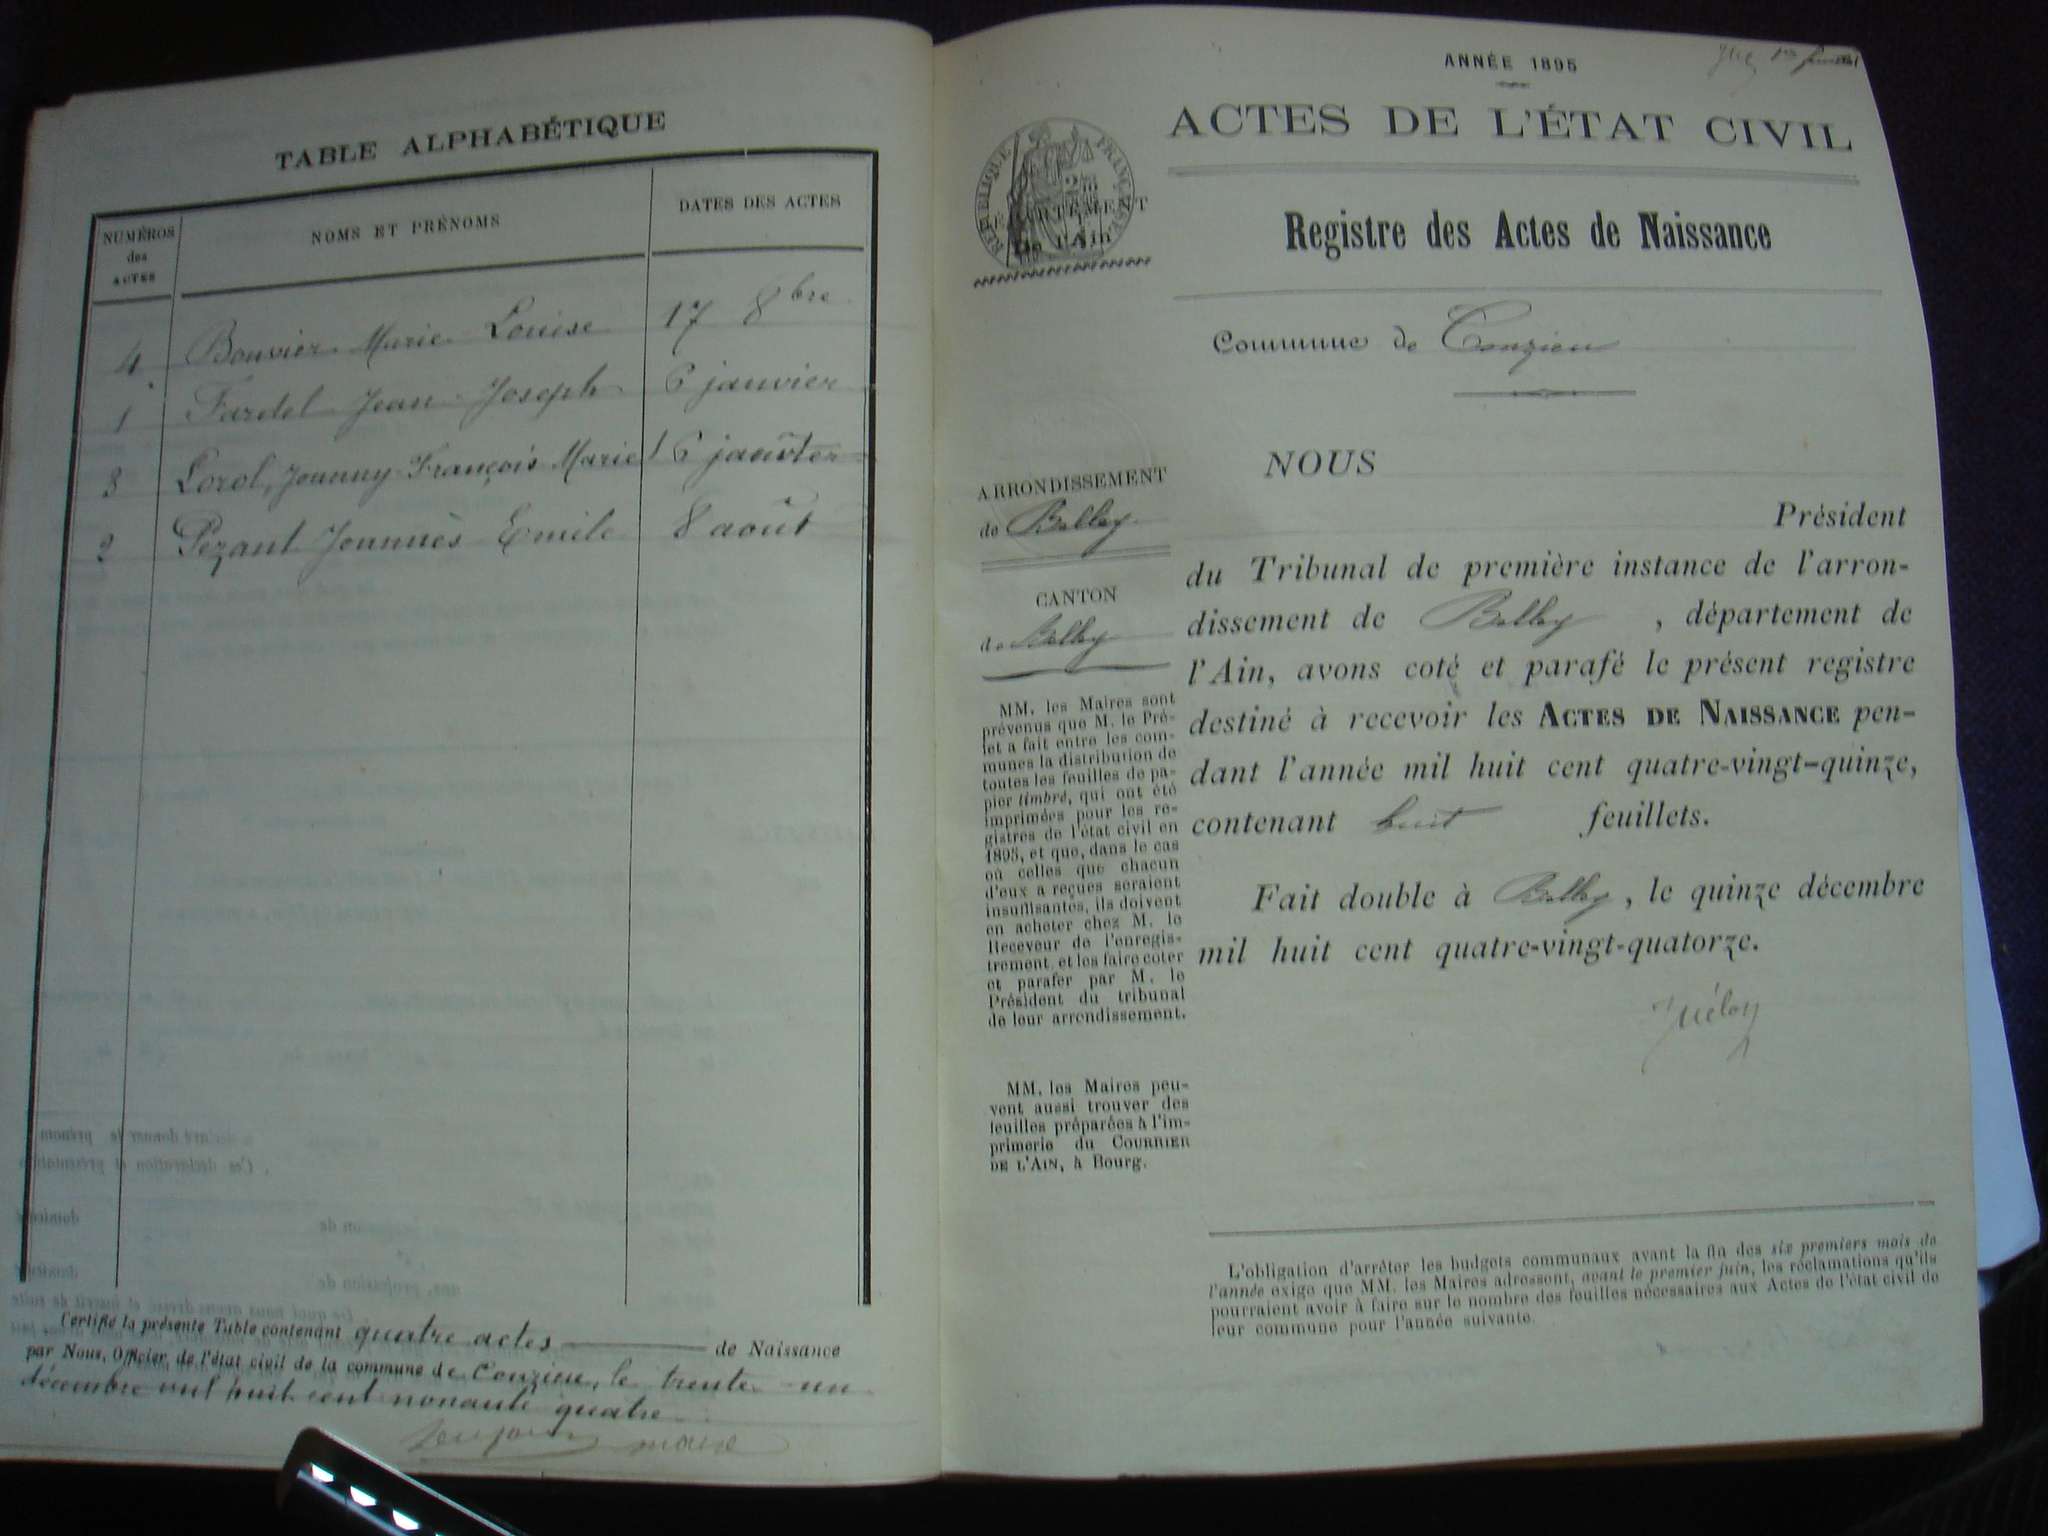 TABLE ALPHABÉTIQUE
NUMÉROS
des
ACTES
NOMS ET PRÉNOMS
DATES DES ACTES
4 Bouvier Marie Louise 17 8bre
1 Fardel Jean Joseph 6 janvier
3 Lorol, Joanny François Marie 16 août
2 Pezant Joannès Emile 8 août
Certifié la présente Table contenant quatre actes de Naissance
par Nous, Officier de l'état civil de la commune de Conzieu, le trente-un
décembre mil huit cent nonante quatre
maire
ANNÉE 1895
ACTES DE L'ÉTAT CIVIL
RÉPUBLIQUE FRANÇAISE
DÉPARTEMENT
De l'Ain
Registre des Actes de Naissance
Commune de Conzieu
ARRONDISSEMENT
de Belley
CANTON
de Belley
MM. les Maires sont
prévenus que M. le Pré-
fet a fait entre les com-
munes la distribution de
toutes les feuilles de pa-
pier timbré, qui ont été
imprimées pour les re-
gistres de l'état civil en
1895, et que, dans le cas
où celles que chacun
d'eux a reçues seraient
insuffisantes, ils doivent
en acheter chez M. le
Receveur de l'enregis-
trement, et les faire coter
et parafer par M. le
Président du tribunal
de leur arrondissement.
MM. les Maires peu-
vent aussi trouver des
feuilles préparées à l'im-
primerie du COURRIER
DE L'AIN, à Bourg.
NOUS
Président
du Tribunal de première instance de l'arron-
dissement de Belley, département de
l'Ain, avons coté et parafé le présent registre
destiné à recevoir les ACTES DE NAISSANCE pen-
dant l'année mil huit cent quatre-vingt-quinze,
contenant huit feuillets.
Fait double à Belley, le quinze décembre
mil huit cent quatre-vingt-quatorze.
L'obligation d'arrêter les budgets communaux avant la fin des six premiers mois de
l'année exige que MM. les Maires adressent, avant le premier juin, les réclamations qu'ils
pourraient avoir à faire sur le nombre des feuilles nécessaires aux Actes de l'état civil de
leur commune pour l'année suivante.